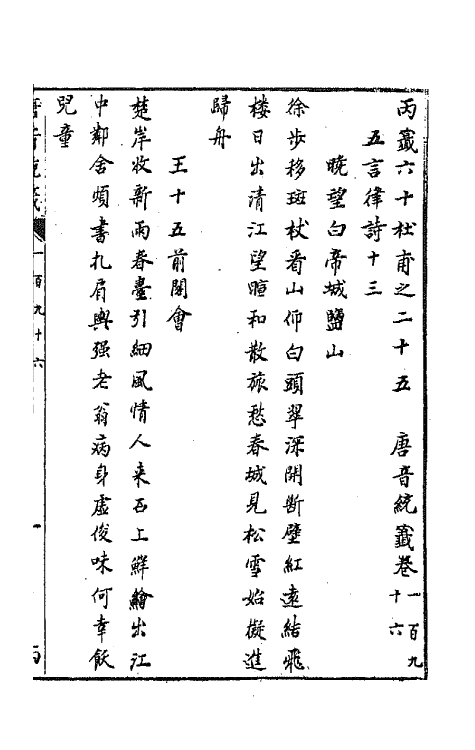 丙籖六十杜甫之二十五　唐音統籖卷一百九十六
五言律詩十三
曉望白帝城鹽山
徐步移斑杖看山仰白頭翠深開斷壁紅遠結飛
楼日出清江望暄和散旅愁春城見松雪始擬進
歸舟
王十五前閣會
楚岸收新雨春臺引細風情人来石上鮮鱠出江
中鄰舍煩書札肩輿强老翁病身虛俊味何幸飫
兒童
一百九十六
一
丙